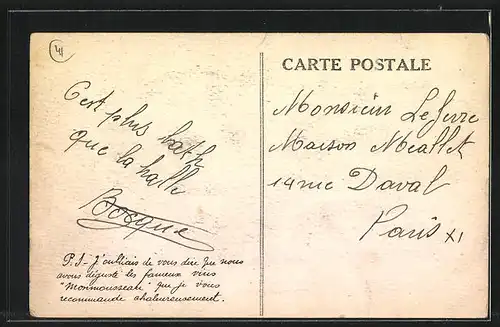 41
C'est plus bath
que la halle
Bocque
P.S- J'oubliais de vous dire que nous
avons dégusté les fameux vins
"Monmousseau" que je vous
recommande chaleureusement.
CARTE POSTALE
Monsieur Lefevre
Maison Meallet
14 rue Daval
Paris XI